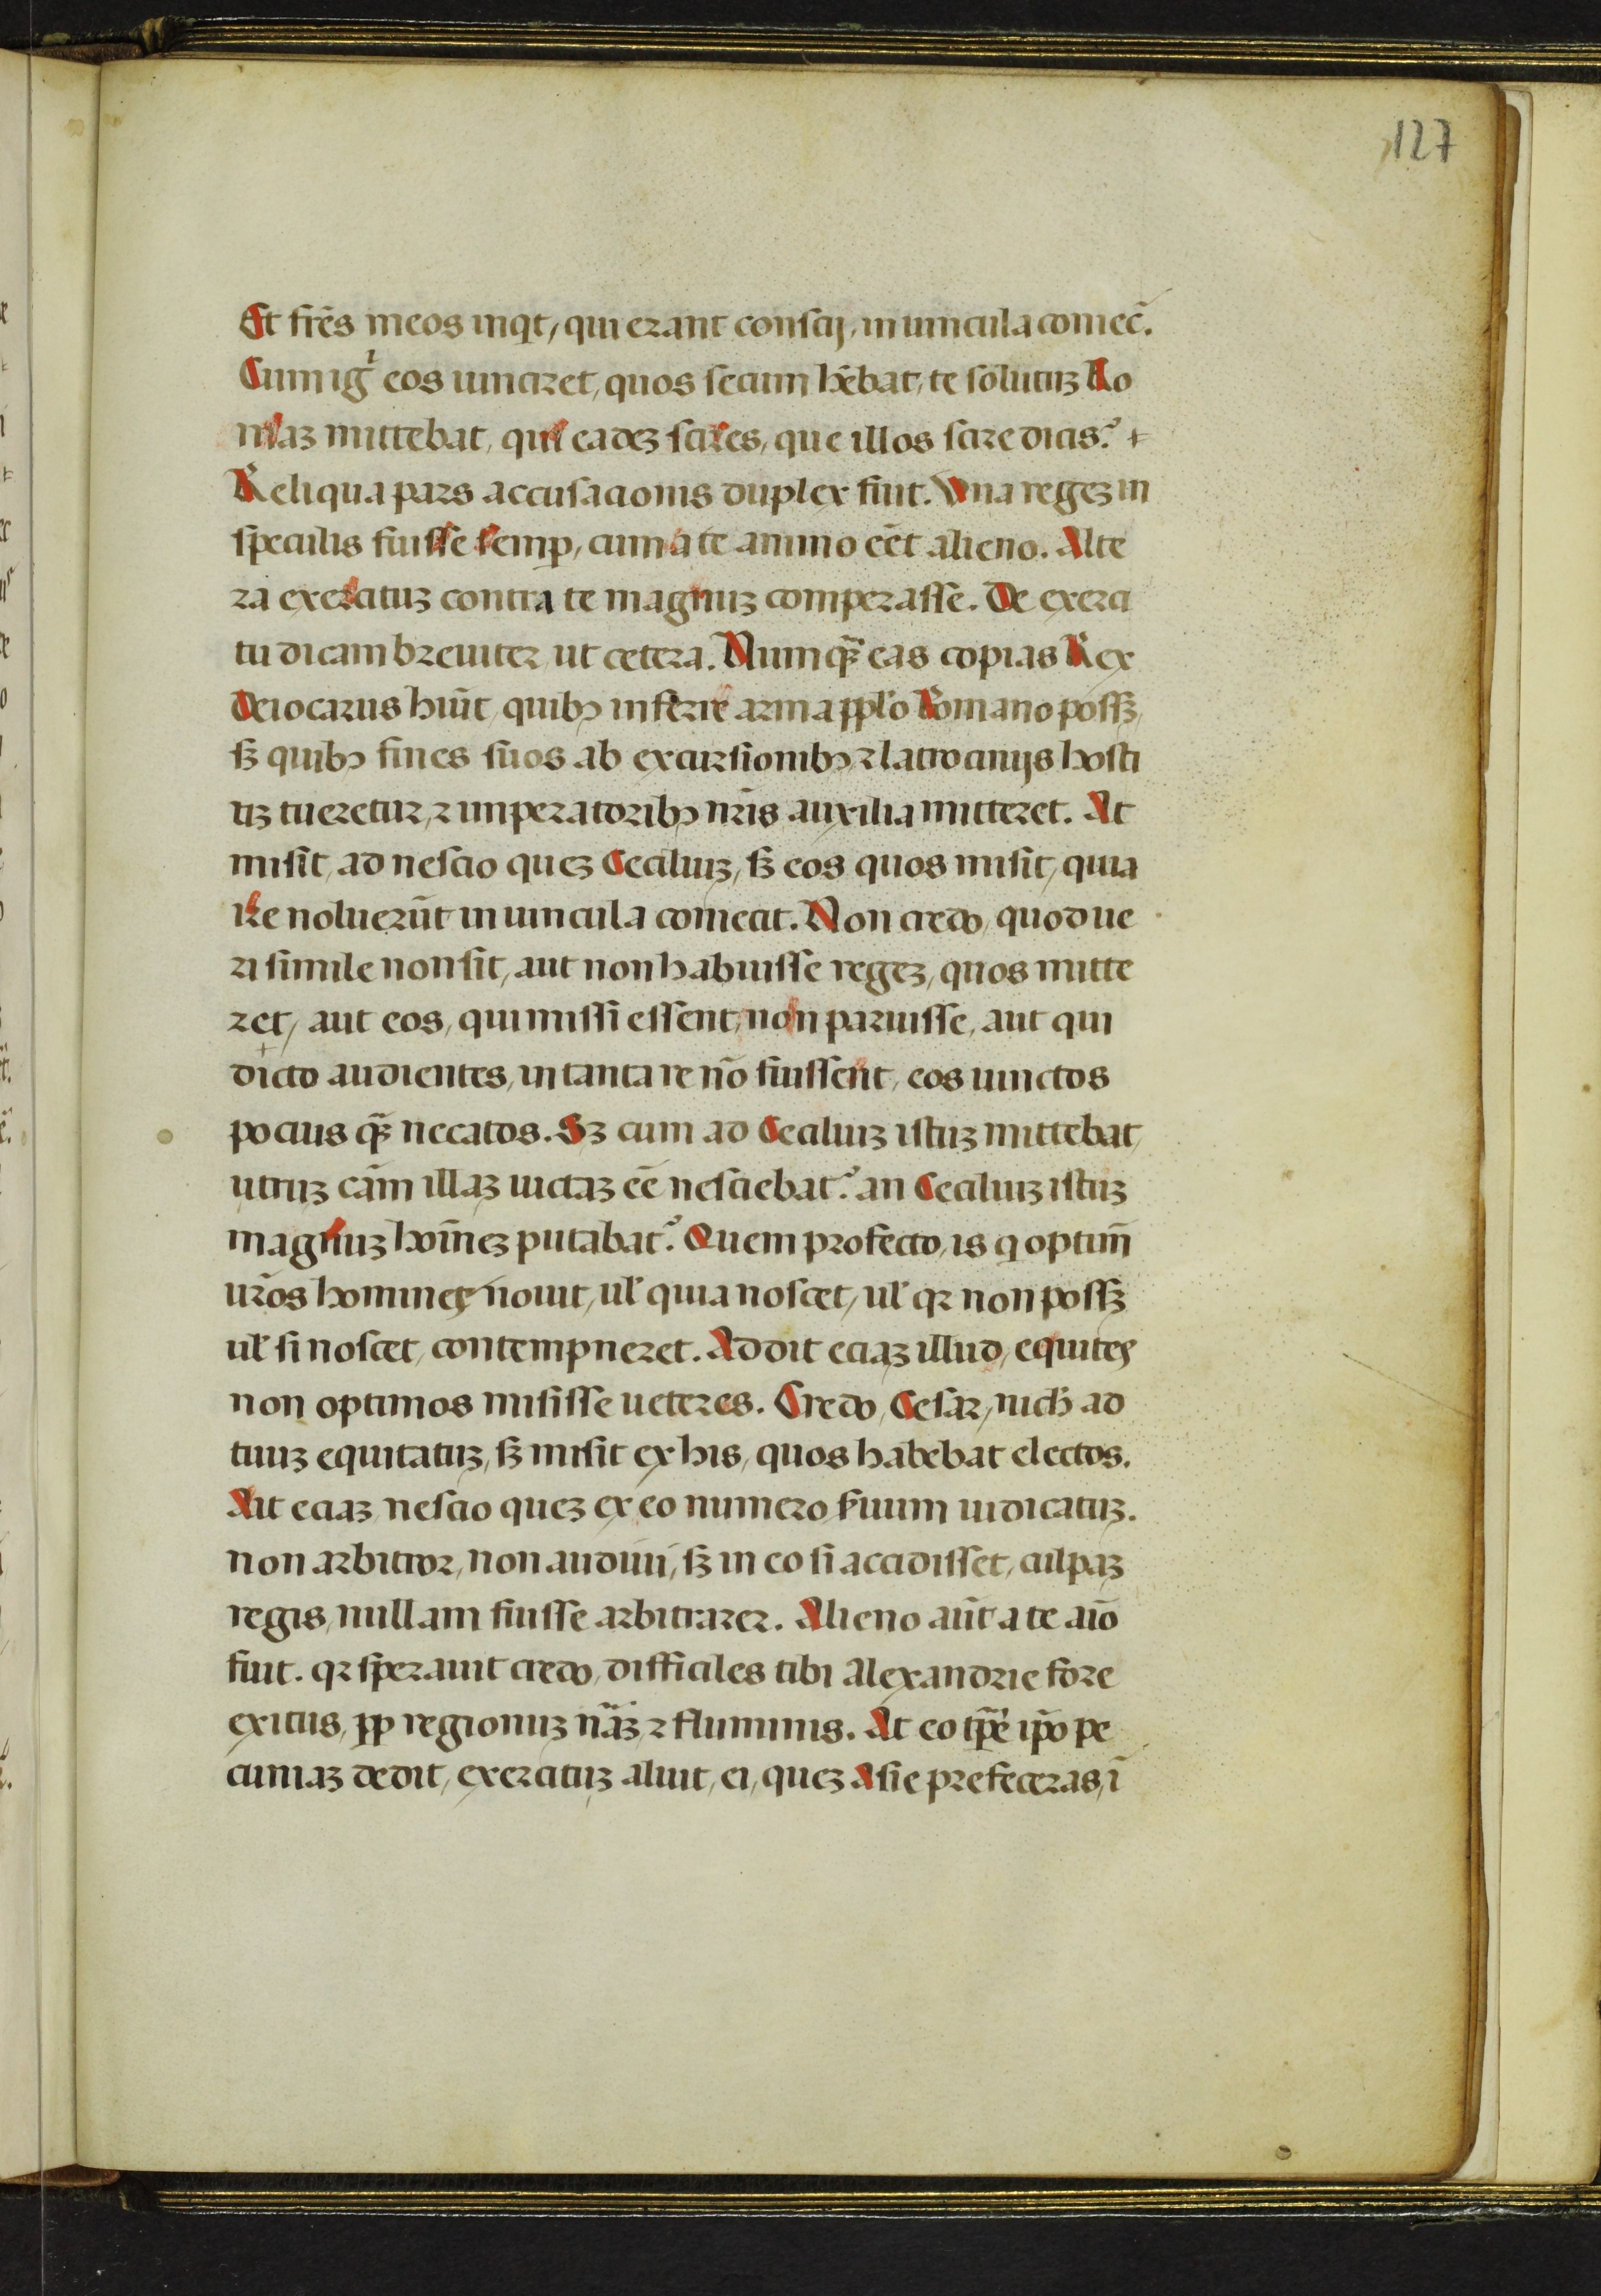 127
Et fr̃es meos inqt, qui erant conscij, in uincula coniec̃.
Cum igͥ eos uinciret, quos secum hẽbat, te solutuꝫ Ro
maꝫ mittebat, qui eadeꝫ scires, que illos scire dicis? +
Reliqua pars accusacionis duplex fuit. Vna regeꝫ in
speculis fuisse semꝑ, cum a te animo eẽt alieno. Alte
ra exercituꝫ contra te magnuꝫ comperasse. De exerci
tu dicam breuiter, ut cetera. Numqꝫ̃ eas copias Rex
Deiocarus hũit, quibꝫ inferre arma pp̃lo Romano possꝫ,
sꝫ quibꝫ fines suos ab excursionibꝫ ⁊ latrocinijs hosti
uꝫ tueretur, ⁊ imperatoribꝫ nr̃is auxilia mitteret. At
misit, ad nescio queꝫ Ceciliuꝫ, sꝫ eos quos misit, quia
ire noluerũt in uincula coniecit. Non credo, quod ue
ri simile non sit, aut non habuisse regeꝫ, quos mitte
ret, aut eos, qui missi essent, non paruisse, aut qui
dicto audientes, in tanta re nõ fuissent, eos uinctos
pocius qꝫ̃ necatos. Sꝫ cum ad Ceciliuꝫ istuꝫ mittebat,
utruꝫ cãm illaꝫ uictaꝫ eẽ nesciebat? an Ceciliuꝫ istuꝫ
magnuꝫ hoĩneꝫ putabat? Quem profecto, is q optim̃
ur̃os homines nouit, ul̃ quia noscet, ul̃ qr non possꝫ
ul̃ si noscet, contempneret. Addit eciaꝫ illud, equites
non optimos misisse ueteres. Credo, Cesar, nich̃ ad
tuuꝫ equitatuꝫ, sꝫ misit ex his, quos habebat electos.
Ait eciaꝫ nescio queꝫ ex eo numero s̃uum iudicatuꝫ.
non arbitror, non audiui, sꝫ in eo si accidisset, culpaꝫ
regis, nullam fuisse arbitrarer. Alieno aũt a te aĩo
fuit. qr sperauit credo, difficiles tibi Alexandrie fore
exitus, ꝓp regionuꝫ nãꝫ, ⁊ fluminis. At eo tp̃e ip̃o pe
cuniaꝫ dedit, exercituꝫ aluit, ei, queꝫ Asie prefeceras, ĩ